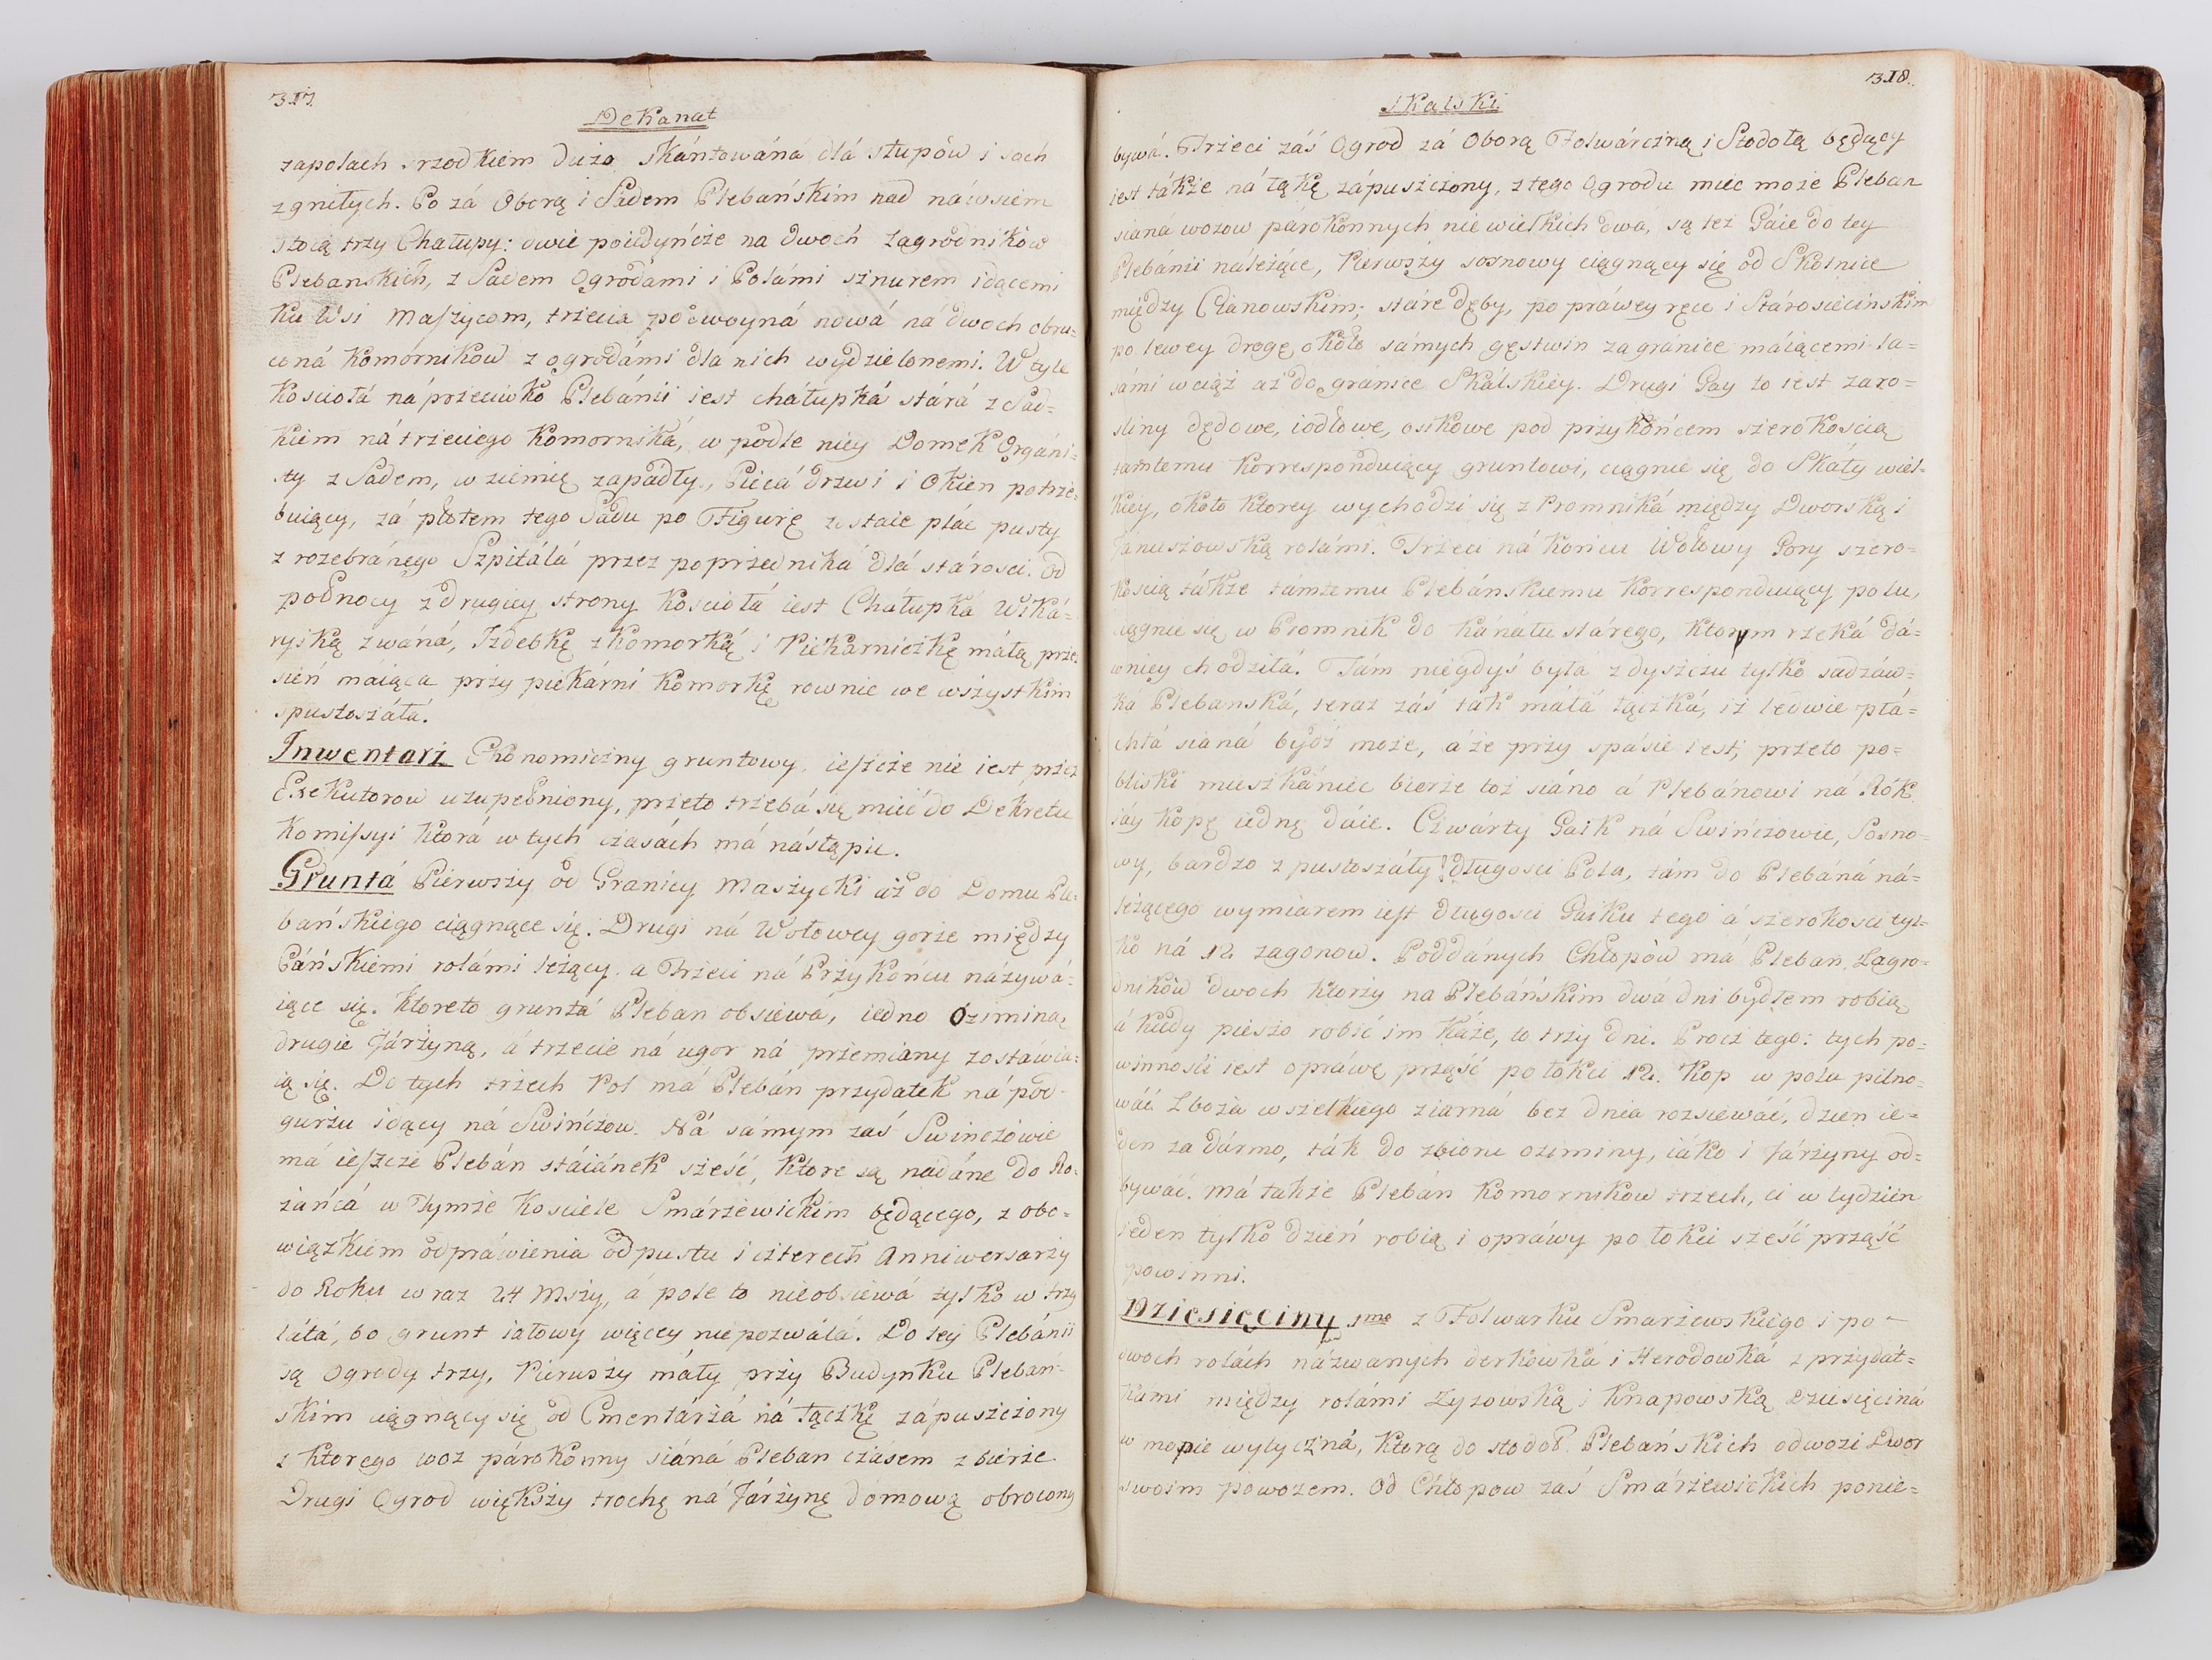 317.
Dekanat
zapolach srzodkiem dużo skántowáná dlá słupów i soch
zgniłych. Po zá Oborą i Sádem Plebańskim nad náwsiem
stoią trzy Chałupy: dwie poiedyńcze na dwoch Zagrodników
Plebanskich, z Sadem Ogrodami i Polámi sznurem idącemi
ku Wsi Maszycom, trzecia podwoyná nowá ná dwoch obru-
coná Komorników z ogrodámi dla nich wydzielonemi. W tyle
Kosciołá náprzeciwko Plebánii iest cháłupká stárá z Sad-
kiem ná trzeciego Komorniká, w podle niey Domek Orgáni-
sty z Sadem, w ziemię zapádły, Piecá drzwi i Okien potrze-
buiący, zá płotem tego Sádu po Figurę zostaie plác pusty
z rozebránego Szpitálá przez poprzedniká dlá stárosci. Od
połnocy z drugiey strony Kosciołá iest Chałupká Wiká-
ryską zwáná, Izdebkę z Komorką i Piekarniczkę máłą prze-
sień máiąca przy piekárni Komorkę rownie we wszystkim
spustoszáłá.
Inwentarz Ekonomiczny gruntowy, ieszcze nie iest przez
Exekutorow uzupełniony, przeto trzebá się mieć do Dekretu
Komissyi ktorá w tych czasách má nástąpic.
Gruntá Pierwszy od Granicy Maszycki aż do Domu Ple-
bańskiego ciągnące się. Drugi ná Wołowey gorze między
Páńskiemi rolámi leżący. a Trzeci ná Przykońcu názywá-
iące się. Ktoreto gruntá Pleban obsiewá, iedno Oziminą,
drugie Járzyną, á trzecie ná ugor ná przemiany zostáwia-
ią się. Do tych trzech Pol má Plebán przydatek ná pod-
gurzu idący ná Swińczow. Ná sámym zaś Swinczówie
má ieszcze Plebán stáiánek sześć, ktore są nadáne do Ro-
żańcá w Tymże Kosciele Smárzewickim będącego, z obo-
wiązkiem odpráwienia odpustu i czterech Anniwersarzy
do Roku wraz 24 Mszy, á pole to nieobsiewá żylko w trzy
látá, bo grunt iałowy więcey niepozwálá. Do tey Plebánii
są Ogrody trzy, Pierwszy máły przy Budynku Plebań-
skim ciągnący się od Cmentárzá ná łączkę zápuszczony
z ktorego woz párokonny siáná Pleban czásem zbierze.
Drugi Ogrod większy trochę ná Járzynę domową obrocony
318.
Skalski.
bywá. Trzeci záś Ogrod zá Oborą Folwárczną i Stodołą będący
iest tákże ná łąkę zápuszczony, z tego Ogrodu miec może Pleban
siáná wozow parokonnych niewielkich dwá, są też Gáie do tey
Plebánii náleżące, Pierwszy sosnowy ciągnący się od Skotnice
między Cianowskim; stáre dęby, po práwey ręce i Stárosiecińskim
po lewey drogę około sámych gęstwin zagránice máiącemi la-
sámi wciąż aż do gránice Skálskiey. Drugi Gay to iest zaro-
sliny dędowe, iodłowe, osikowe pod przykońcem szerokoscią
tamtemu Korresponduiący gruntowi, ciągnie się do Skały wiel-
kiey, około ktorey wychodzi się z Promniká między Dworską i
Jánuszowską rolámi. Trzeci ná końcu Wołowy Gory szero-
koscią tákże támtemu Plebánskiemu Korresponduiący polu,
ciągnie się w Promnik do kánáłu stárego, ktorym rzeká dá-
wniey chodziłá. Tám niegdyś była z dyszczu tylko sadzáw-
ká Plebanská, teraz záś ták máłá łączká, iż ledwie płá-
chtá sianá bydź może, á że przy spásie iest; przeto po-
bliski mieszkániec bierze toż siáno á Plebánowi ná Rok
iáy kopę iednę dáie. Czwárty Gaik ná Swińczowie, Sosno-
wy, bardzo zpustoszáły! długosci Pola, tám do Plebáná ná-
leżącego wymiarem iest długosci Gaiku tego á szerokosci tyl-
ko ná 12 zagonow. Poddánych Chłopów má Pleban, Zagro-
dników dwoch ktorzy na Plebáńskim dwá dni bydłem robią,
á kiedy pieszo robić im káże, to trzy dni. Procz tego: tych po-
winnosći iest opráwę prząść po łokci 12. Kop w polu pilno-
wáć. Zboża wszelkiego ziarná bez dnia rozsiewáć, dzien ie-
den za dármo, ták do zbioru oziminy, iáko i Járzyny od-
bywáć. má tákże Plebán Komornikow trzech, ci w tydzień
ieden tylko dzień robią i opráwy po łokci sześć prząść
powinni.
Dziesięciny 1mo z Folwarku Smarzewskiego i po
dwoch rolách názwanych derkówká i Herodowká z przydát-
kami między rolámi Zyzowską i Knapowską Dziesięciná
w mopie wytyczná, ktorą do stodoł Plebańskich odwozi Dwor
swoim powozem. Od Chłopow zaś Smárzewickich ponie-